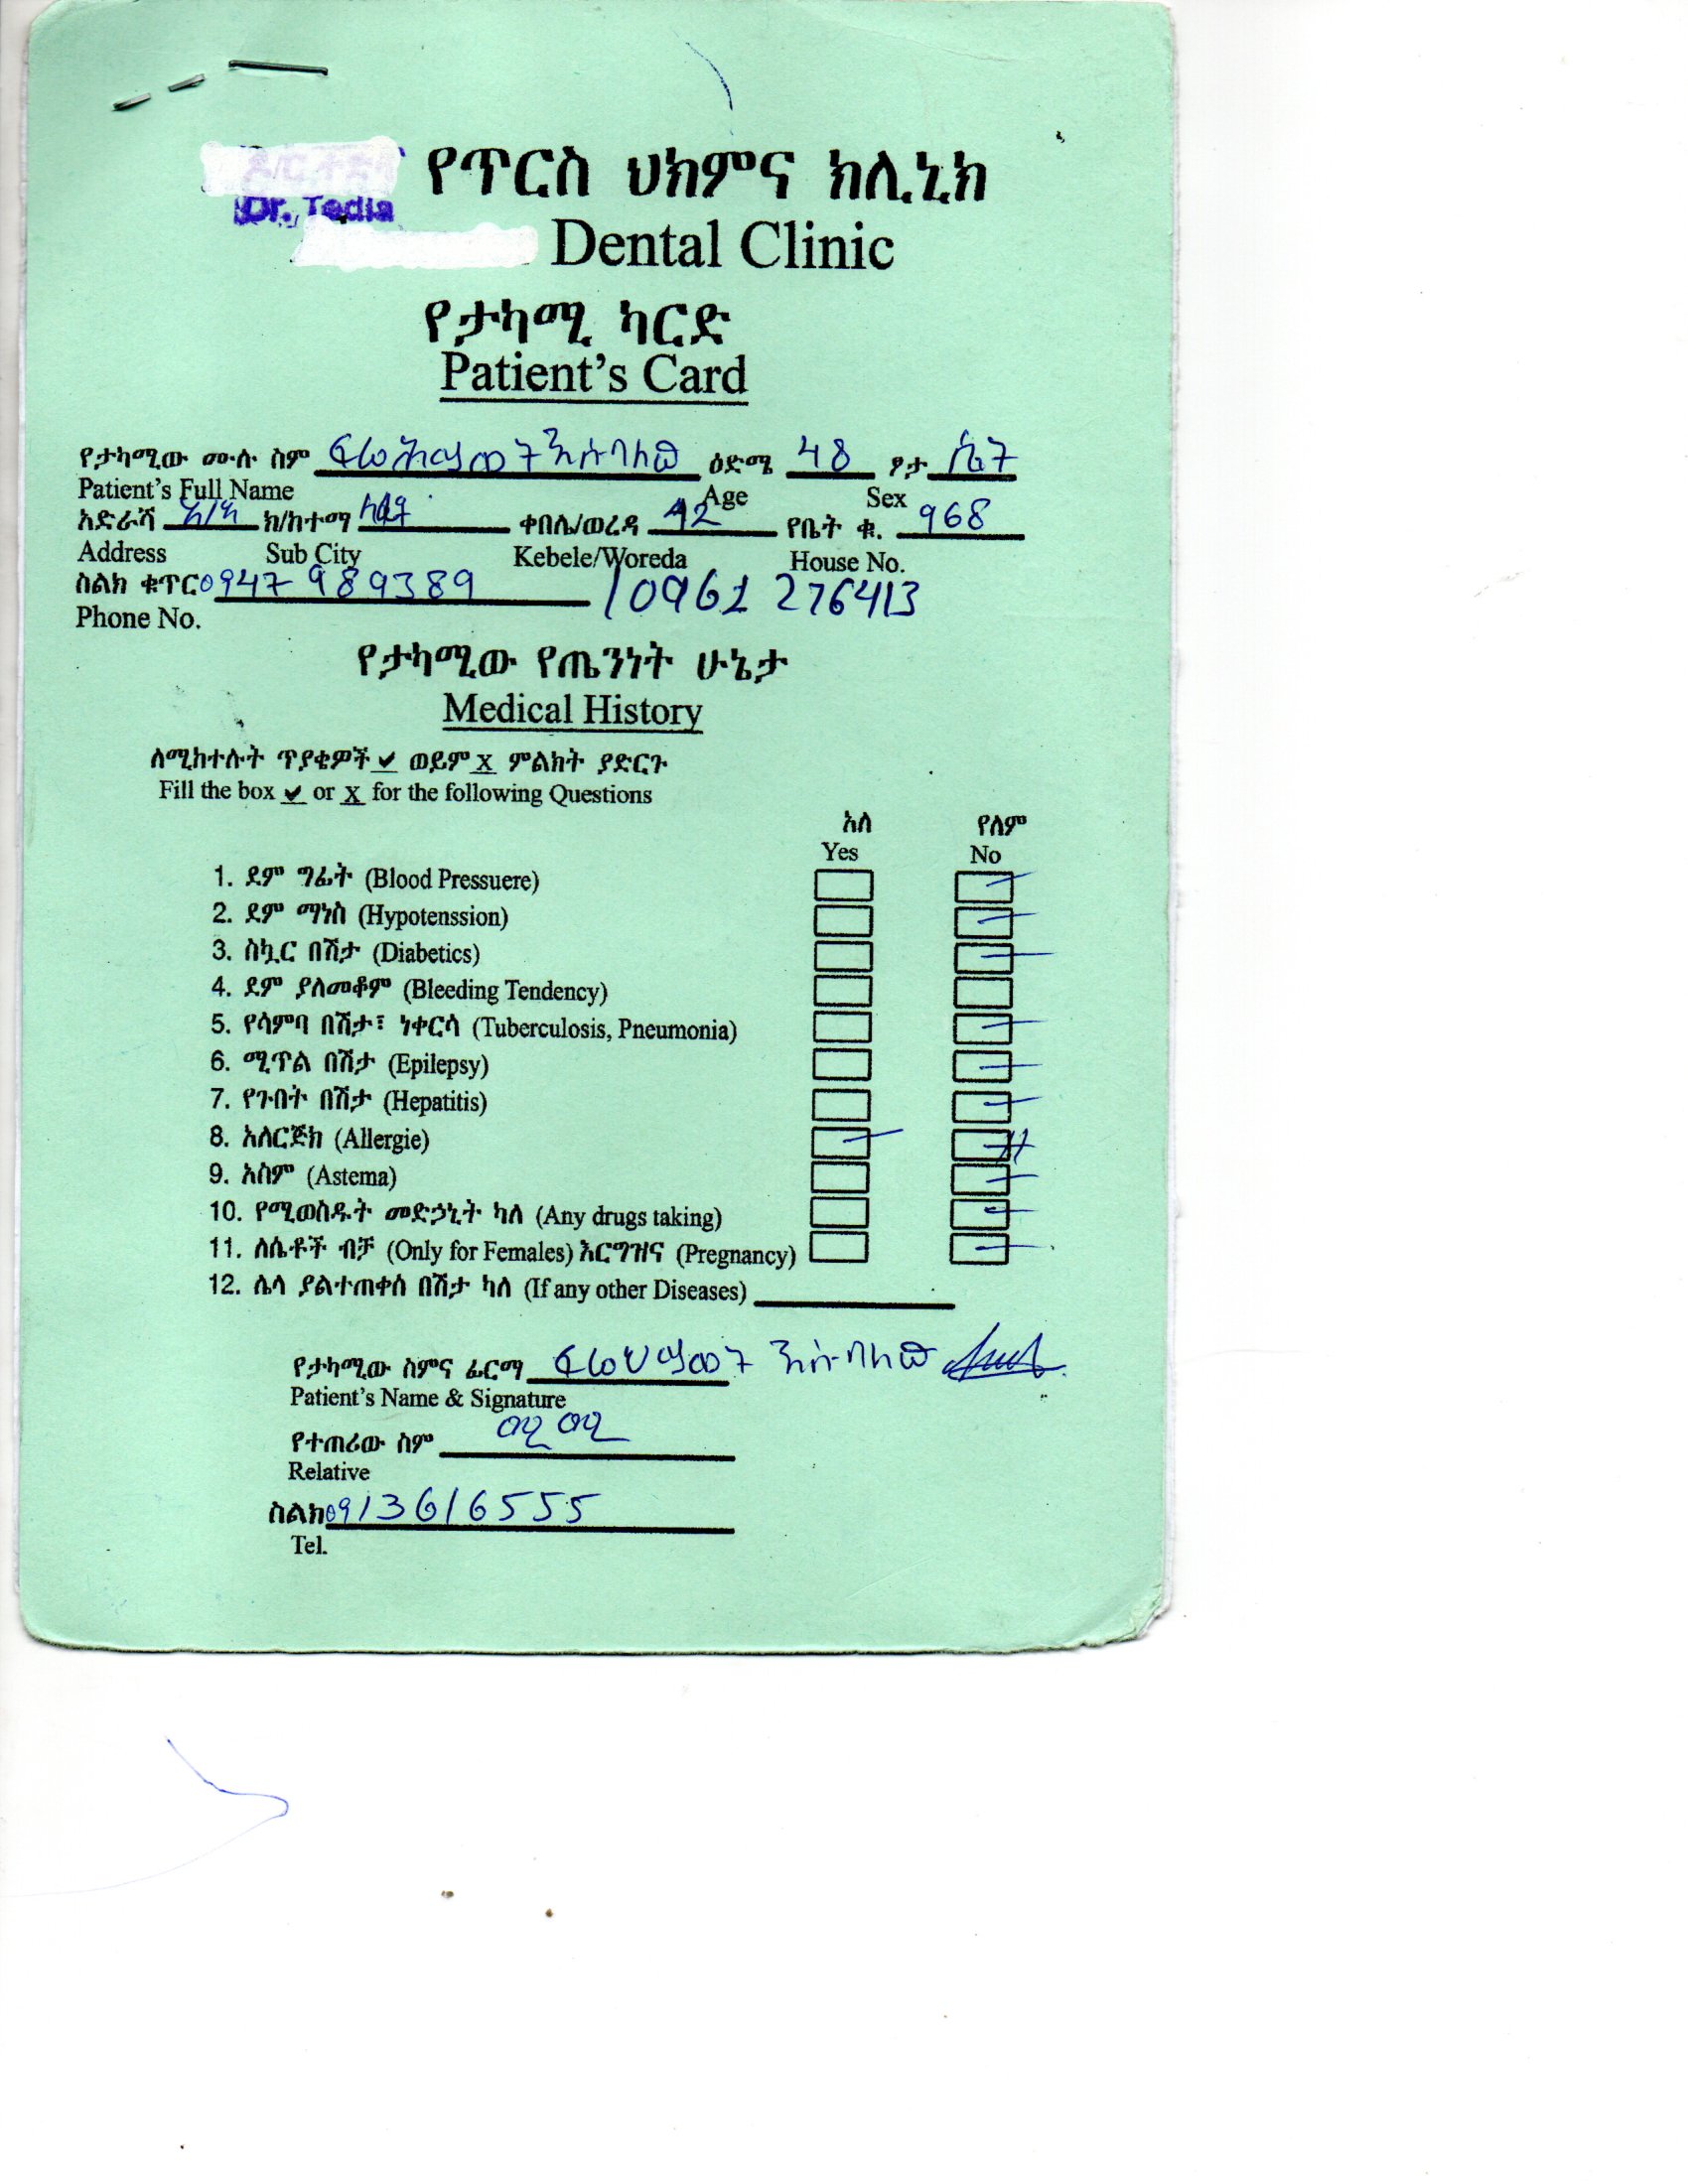 የጥርስ ህክምና ክሊኒክ
Dr. Tedla
Dental Clinic
የታካሚ ካርድ
Patient's Card
የታካሚው ሙሉ ስም ፍሬሕይወት እሱባለው ዕድሜ 48 ፆታ ሴት
Patient's Full Name Age Sex
አድራሻ አ/አ ክ/ከተማ ቀበሌ/ወረዳ 12 የቤት ቁ. 968
Address Sub City Kebele/Woreda House No.
ስልክ ቁጥር 0947 989389 / 0961 276413
Phone No.
የታካሚው የጤንነት ሁኔታ
Medical History
ለሚከተሉት ጥያቄዎች ✔ ወይም X ምልክት ያድርጉ
Fill the box ✔ or X for the following Questions
አለ የለም
Yes No
1. ደም ግፊት (Blood Pressuere)
2. ደም ማነስ (Hypotenssion)
3. ስኳር በሽታ (Diabetics)
4. ደም ያለመቆም (Bleeding Tendency)
5. የሳምባ በሽታ፣ ነቀርሳ (Tuberculosis, Pneumonia)
6. ሚጥል በሽታ (Epilepsy)
7. የጉበት በሽታ (Hepatitis)
8. አለርጅክ (Allergie)
9. አስም (Astema)
10. የሚወስዱት መድኃኒት ካለ (Any drugs taking)
11. ለሴቶች ብቻ (Only for Females) እርግዝና (Pregnancy)
12. ሌላ ያልተጠቀሰ በሽታ ካለ (If any other Diseases)
የታካሚው ስምና ፊርማ ፍሬህይወት እሱባለው
Patient's Name & Signature
የተጠሪው ስም ማሚ ማሚ
Relative
ስልክ 0913616555
Tel.